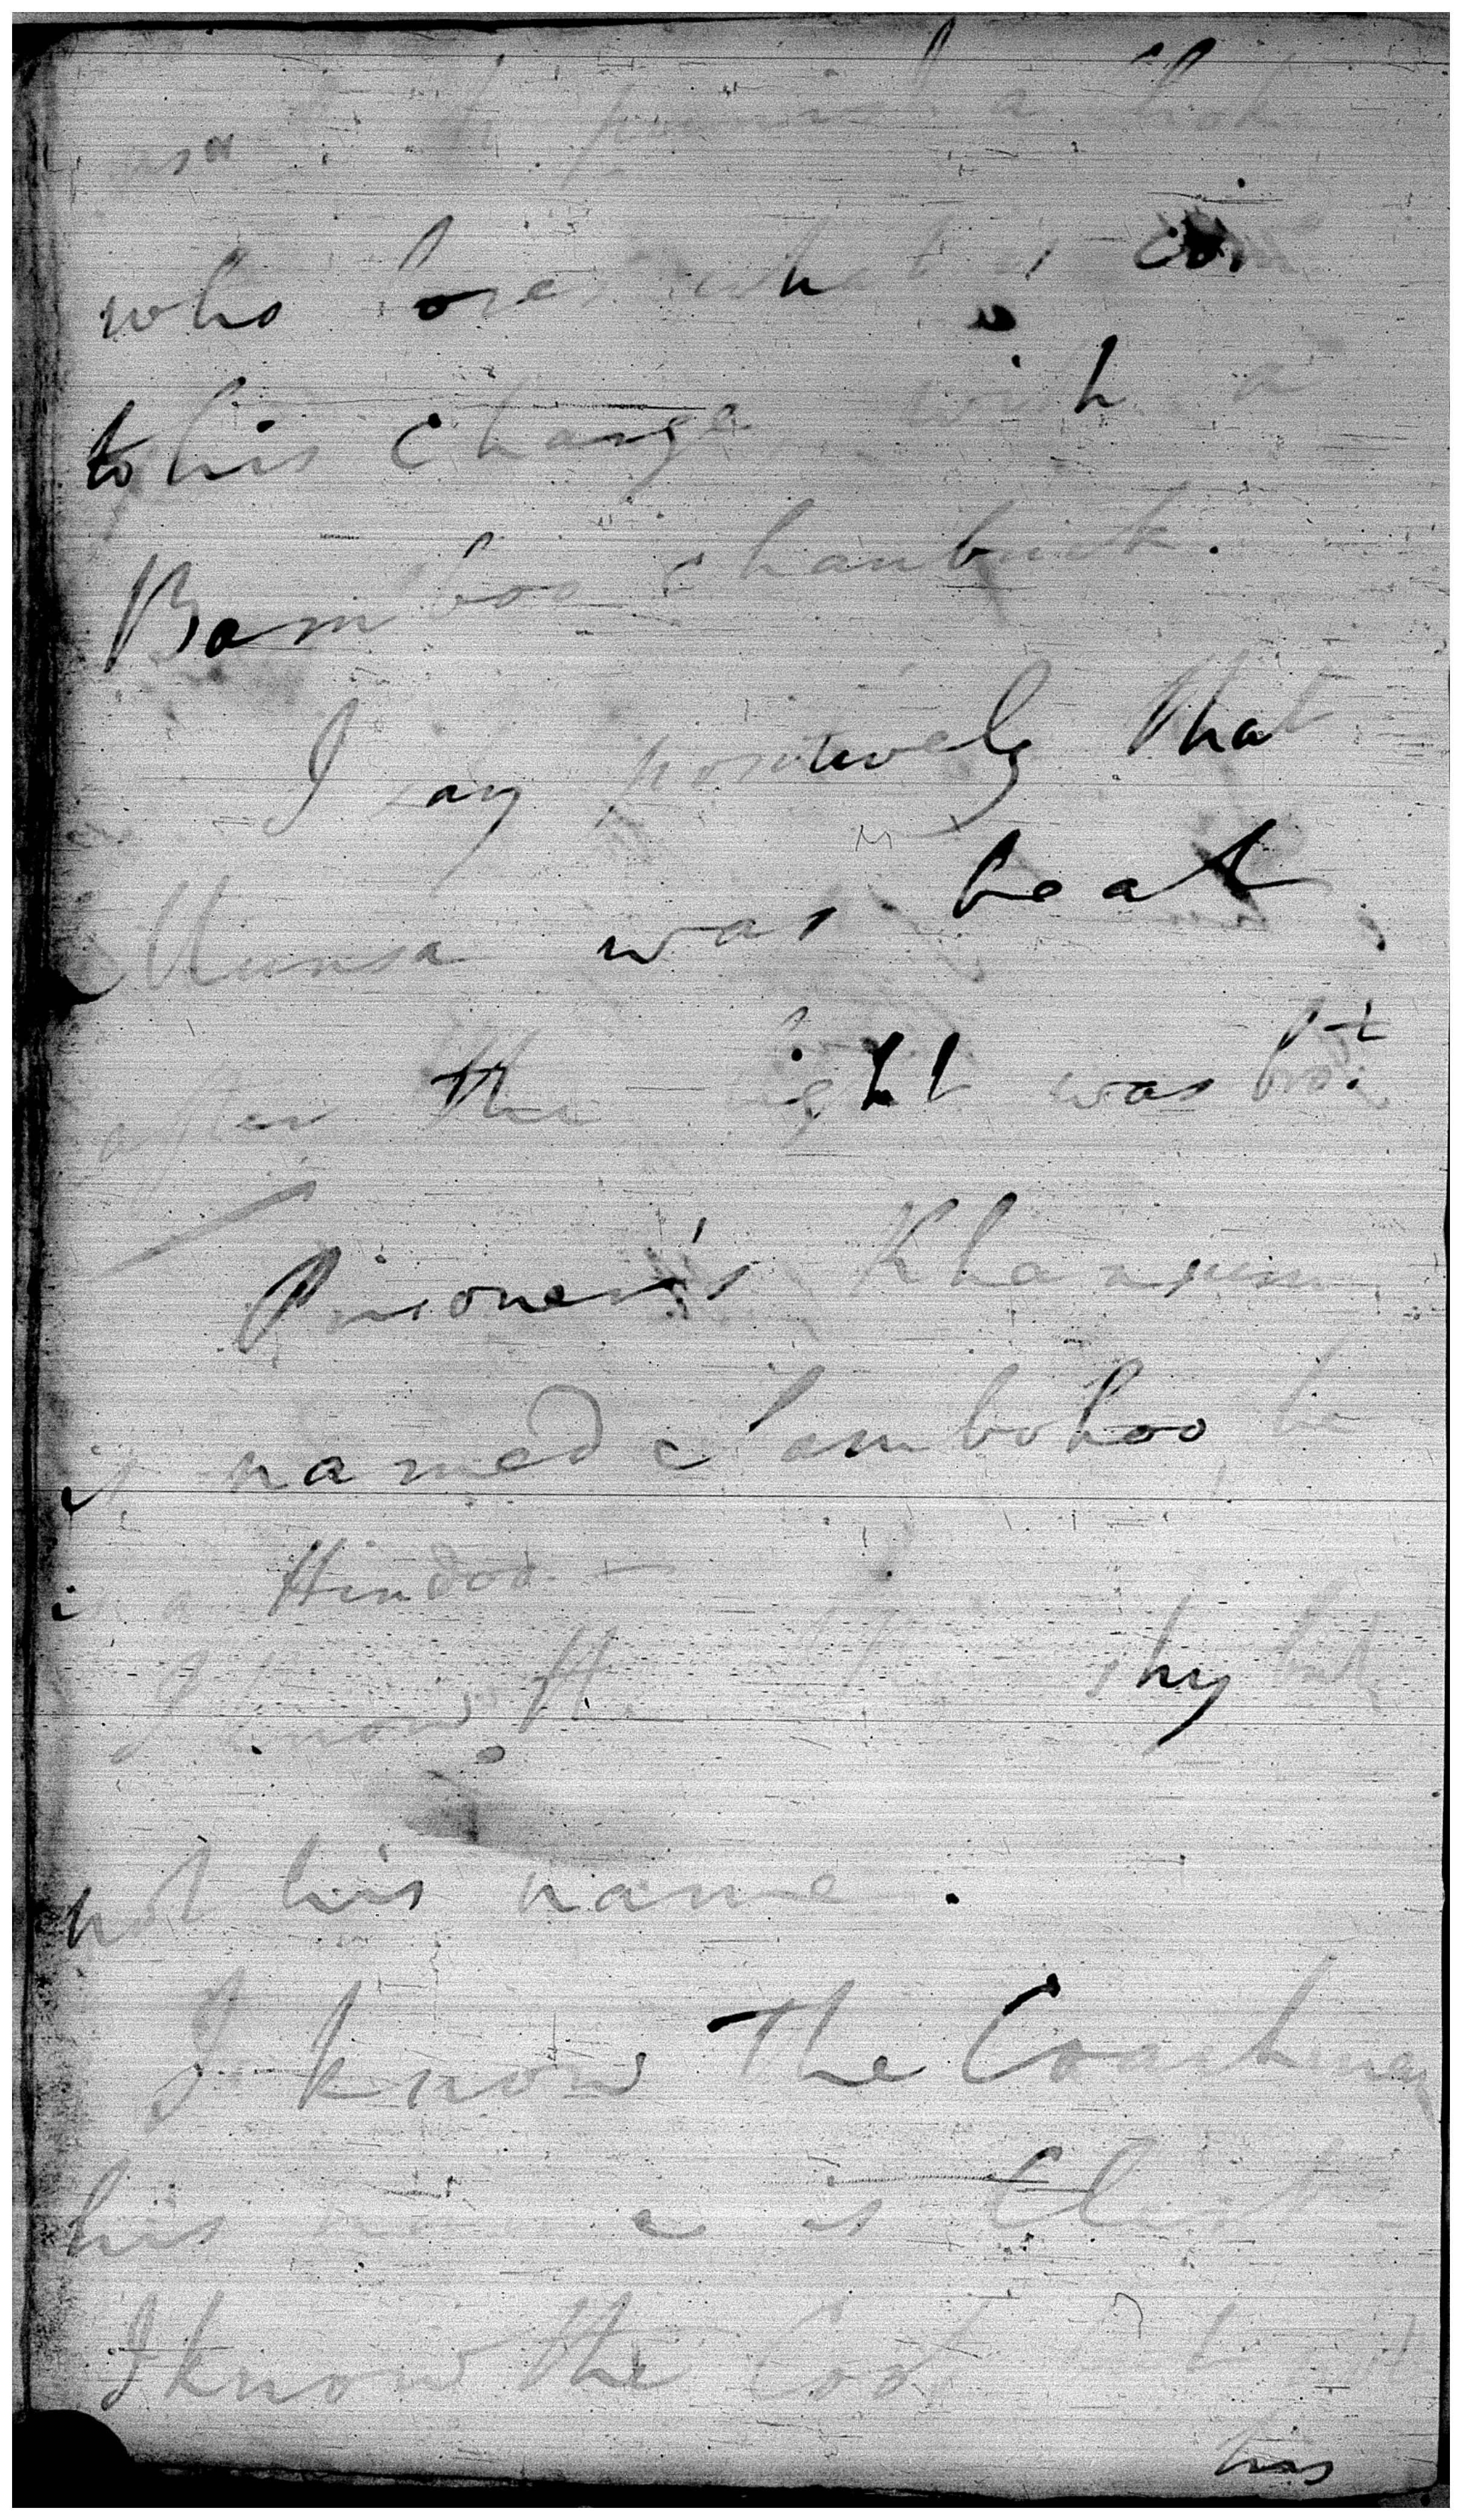 punish a
who loses what is
to his charge with a
Bamboo chaubuck.
I say positively that
Munsa was beat
after the light was bro.t
Prisoner's Khansum
is named Chamboloo he
is a Hindoo. —
I know the shy but
not his name.
I know the Coachman
his name is
I know the Cook but not
his